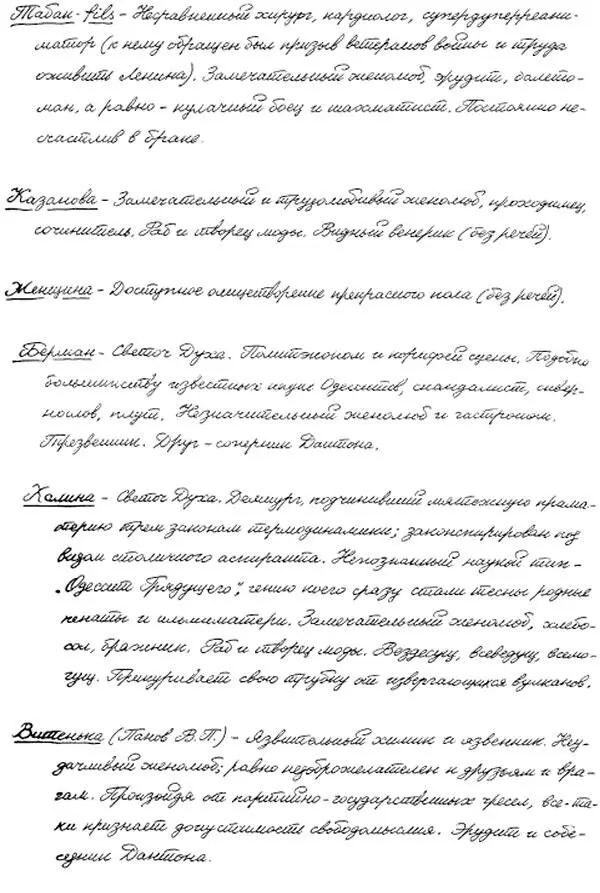 Табак-fils – Несравненный хирург, кардиолог, супердуперреани-
матор (к нему обращен был призыв ветеранов войны и труда
оживить Ленина). Замечательный женолюб, эрудит, балето-
ман, а равно – кулачный боец и шахматист. Постоянно не-
счастлив в браке.
Казанова – Замечательный и трудолюбивый женолюб, проходимец,
сочинитель. Раб и творец моды. Видный венерик (без речей).
Женщина – Доступное олицетворение прекрасного пола (без речей).
Берман – Светоч Духа. Политэконом и корифей сцены. Подобно
большинству известных науке Одесситов, скандалист, сквер-
нослов, плут. Незначительный женолюб и гастроном.
Трезвенник. Друг-соперник Дантона.
Калина – Светоч Духа. Демиург, подчинивший мятежную прама-
терию трем законам термодинамики; законспирирован под
видом столичного аспиранта. Непознанный наукой тип –
„Одессит Грядущего", гению коего сразу стали тесны родные
пенаты и альмаматери. Замечательный женолюб, хлебо-
сол, бражник. Раб и творец моды. Вездесущ, всеведущ, всемо-
гущ. Прикуривает свою трубку от извергающихся вулканов.
Витенька (Панов В.П.) – Язвительный химик и язвенник. Неу-
дачливый женолюб; равно недоброжелателен к друзьям и вра-
гам. Произойдя от партийно-государственных чресел, все-та-
ки признает допустимость свободомыслия. Эрудит и собе-
седник Дантона.